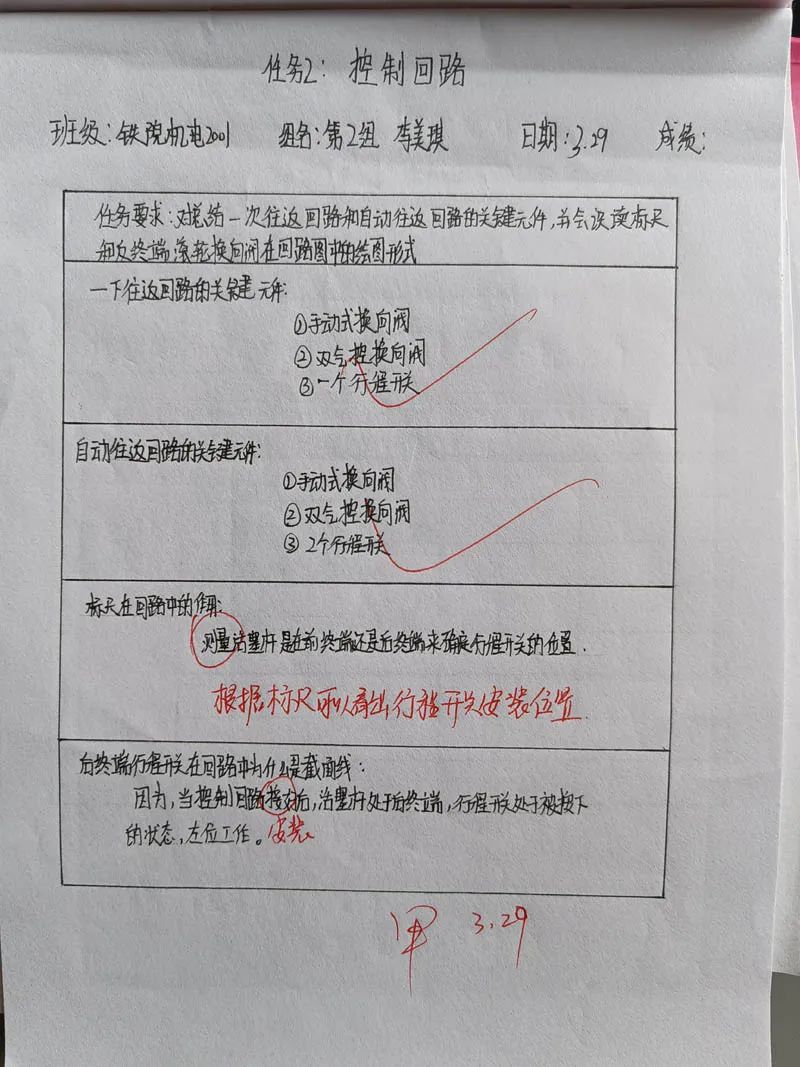 任务2：控制回路
班级：铁院机电2001 组名：第2组 李美琪 日期：3.29 成绩：
任务要求：对总结一次往返回路和自动往返回路的关键元件，并会识读标尺
和后终端滚轮换向阀在回路图中的绘图形式
一下往返回路的关键元件：
①手动式换向阀
②双气控换向阀
③一个行程开关
自动往返回路的关键元件：
①手动式换向阀
②双气控换向阀
③2个行程开关
标尺在回路中的作用：
测量活塞杆是在前终端还是后终端来确定行程开关的位置.
根据标尺可以看出行程开关安装位置.
后终端行程开关在回路中为什么是截面线：
因为，当控制回路接好后，活塞杆处于后终端，行程开关处于被按下
的状态，左位工作。安装
甲 3.29